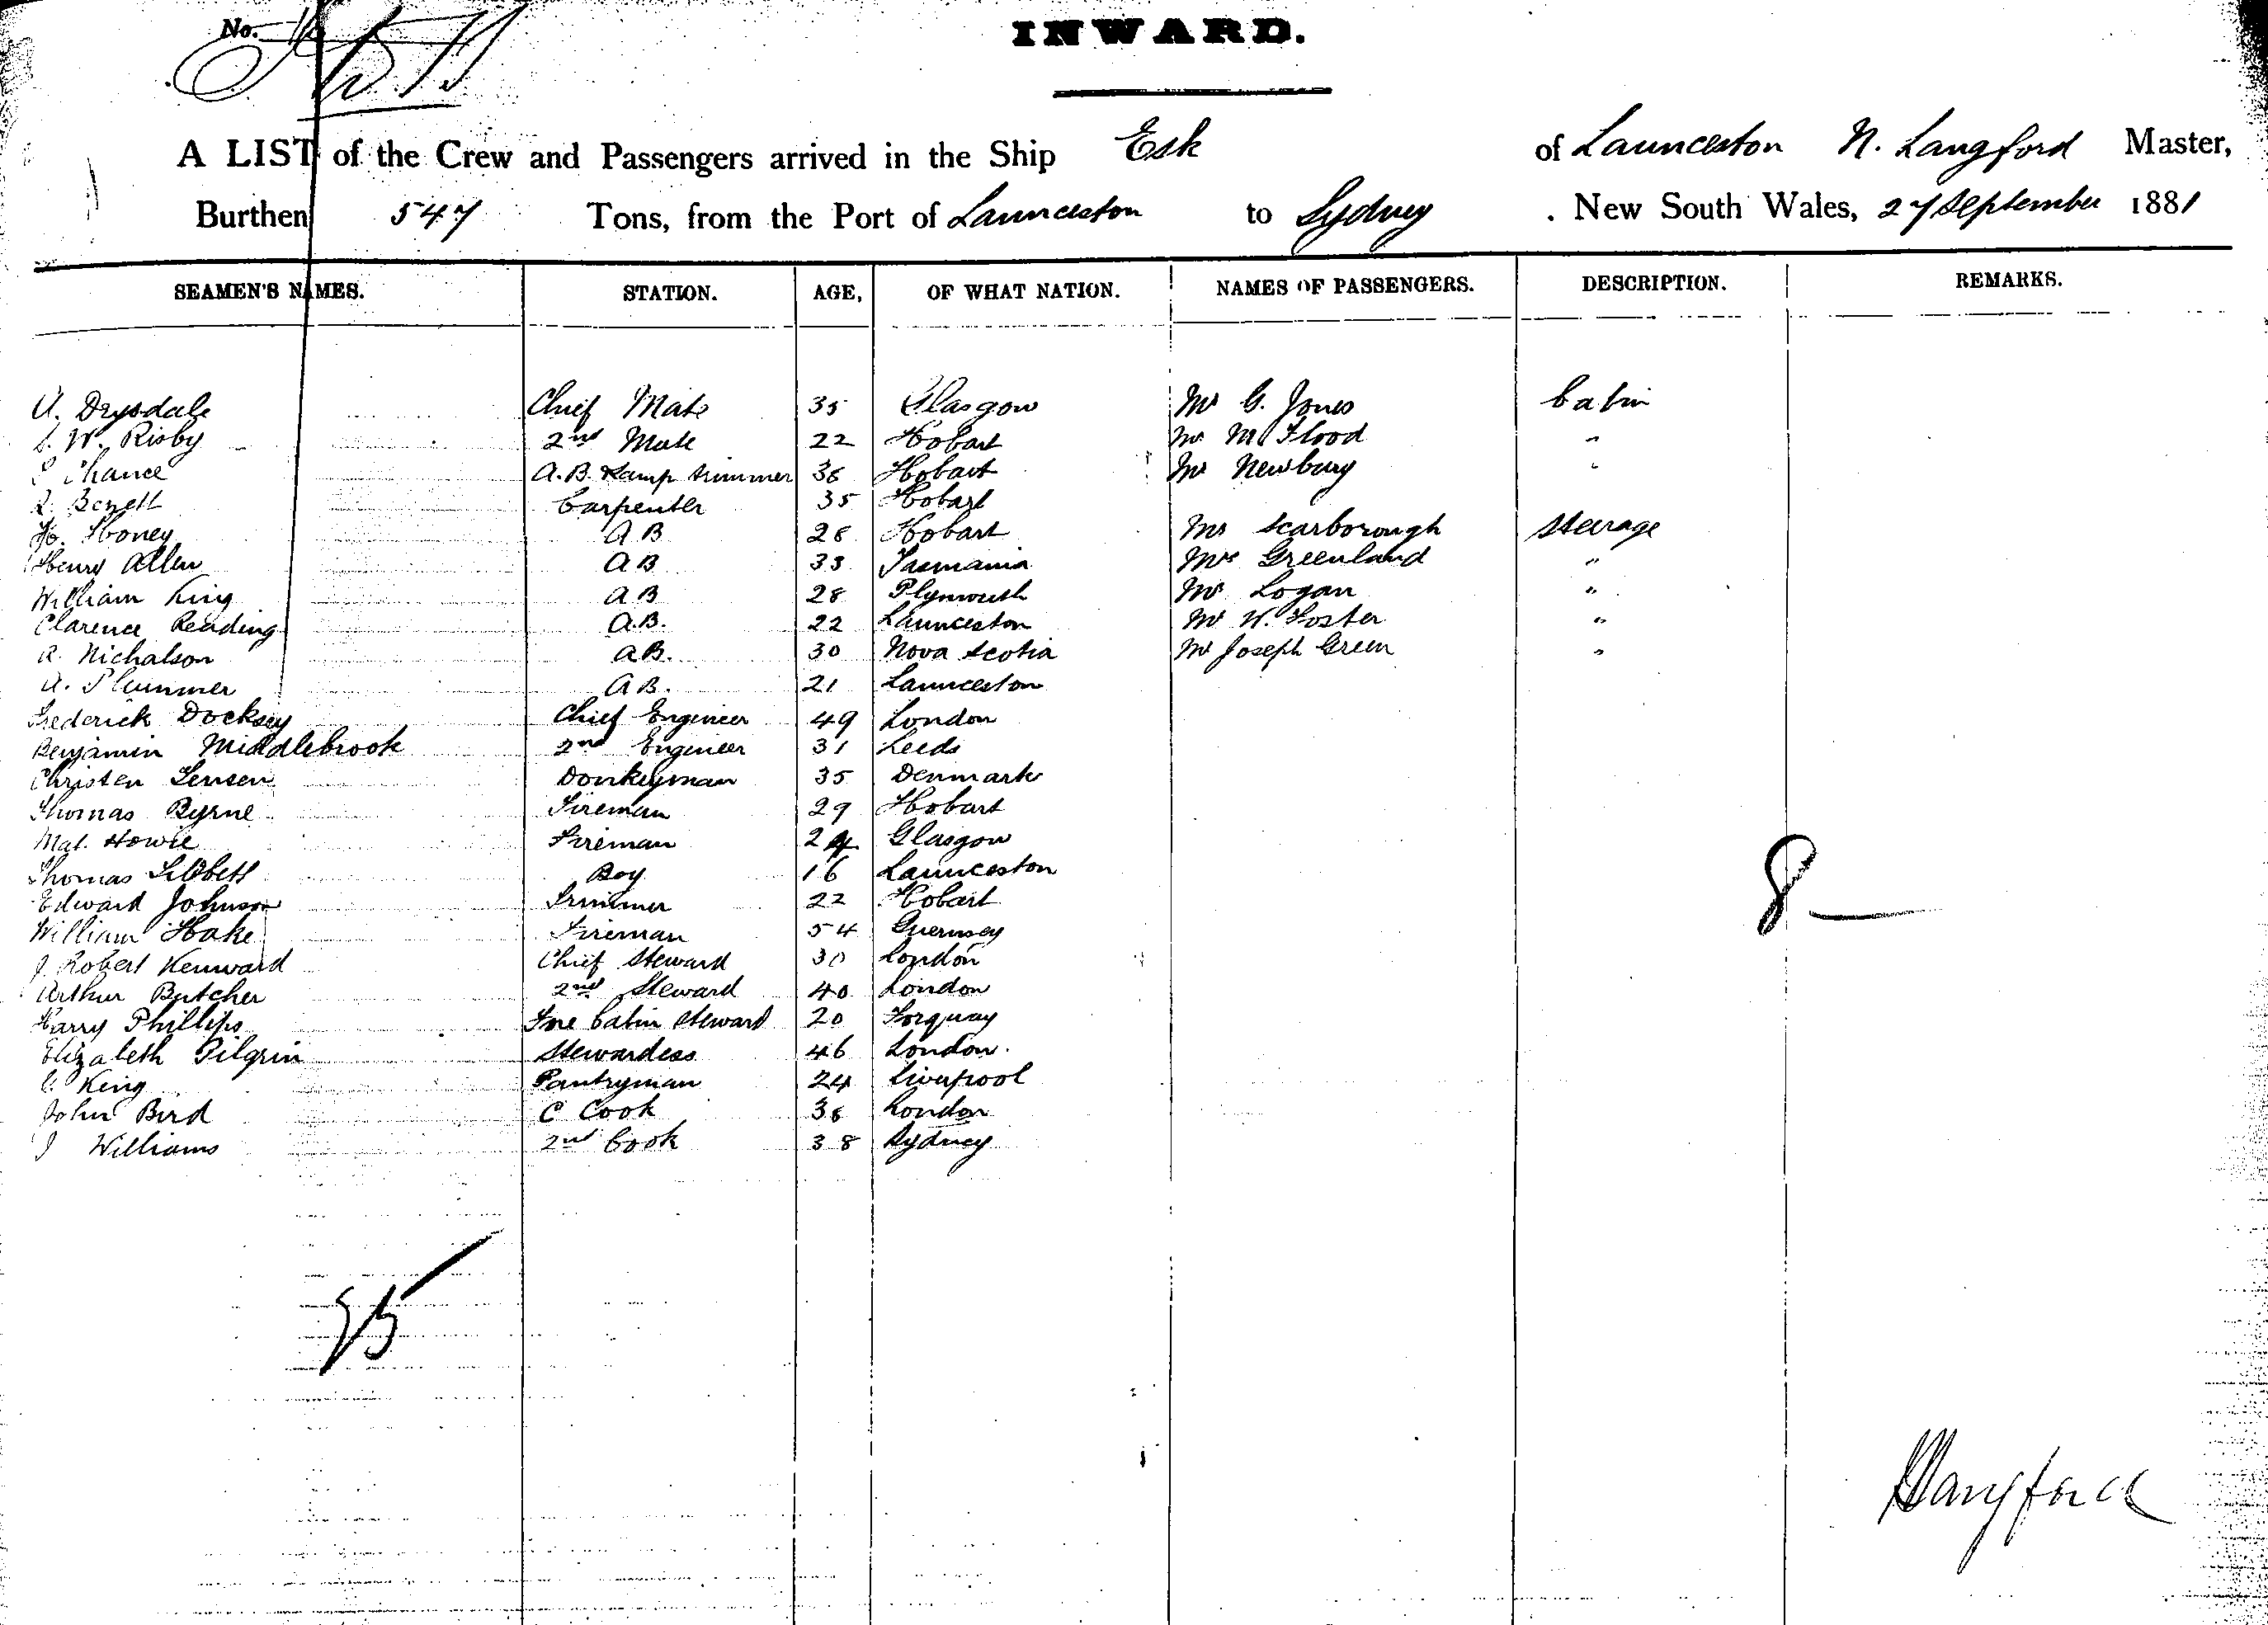 No.
INWARD.
A LIST of the Crew and Passengers arrived in the Ship Esk of Launceston N. Langford Master,
Burthen 547 Tons, from the Port of Launceston to Sydney . New South Wales, 27 September 1881
SEAMEN'S NAMES. STATION. AGE, OF WHAT NATION. NAMES OF PASSENGERS. DESCRIPTION. REMARKS.
A. Drysdale Chief Mate 35 Glasgow Mr G. Jones Cabin
W. Risby 2nd Mate 22 Hobart Mr Flood "
Chance A.B. Lamp trimmer 38 Hobart Mr Newbury "
Carpenter 35 Hobart
H. Honey A B 28 Hobart Mr Scarborough Steerage
Henry Allen A B 33 Tasmania Mrs Greenland "
William King A B 28 Plymouth Mr Logan "
Clarence Reading A.B. 22 Launceston Mr W. Foster "
R. Nichalson A B. 30 Nova Scotia Mr Joseph Green "
A. Plummer A B. 21 Launceston
Frederick Docksey Chief Engineer 49 London
Benjamin Middlebrook 2nd Engineer 31 Leeds
Christen Jensen Donkeyman 35 Denmark
Thomas Byrne Fireman 29 Hobart
Mat. Howie Fireman 24 Glasgow
Thomas Boy 16 Launceston
Edward Johnson Trimmer 22 Hobart
William Hake Fireman 54 Guernsey
J. Robert Kenward Chief Steward 30 London
Arthur Butcher 2nd Steward 40 London
Harry Phillips Fore Cabin Steward 20 Torquay
Elizabeth Pilgrim Stewardess 46 London.
King Pantryman 24 Liverpool
John Bird C Cook 38 London
J Williams 2nd Cook 38 Sydney
8
25
Langford